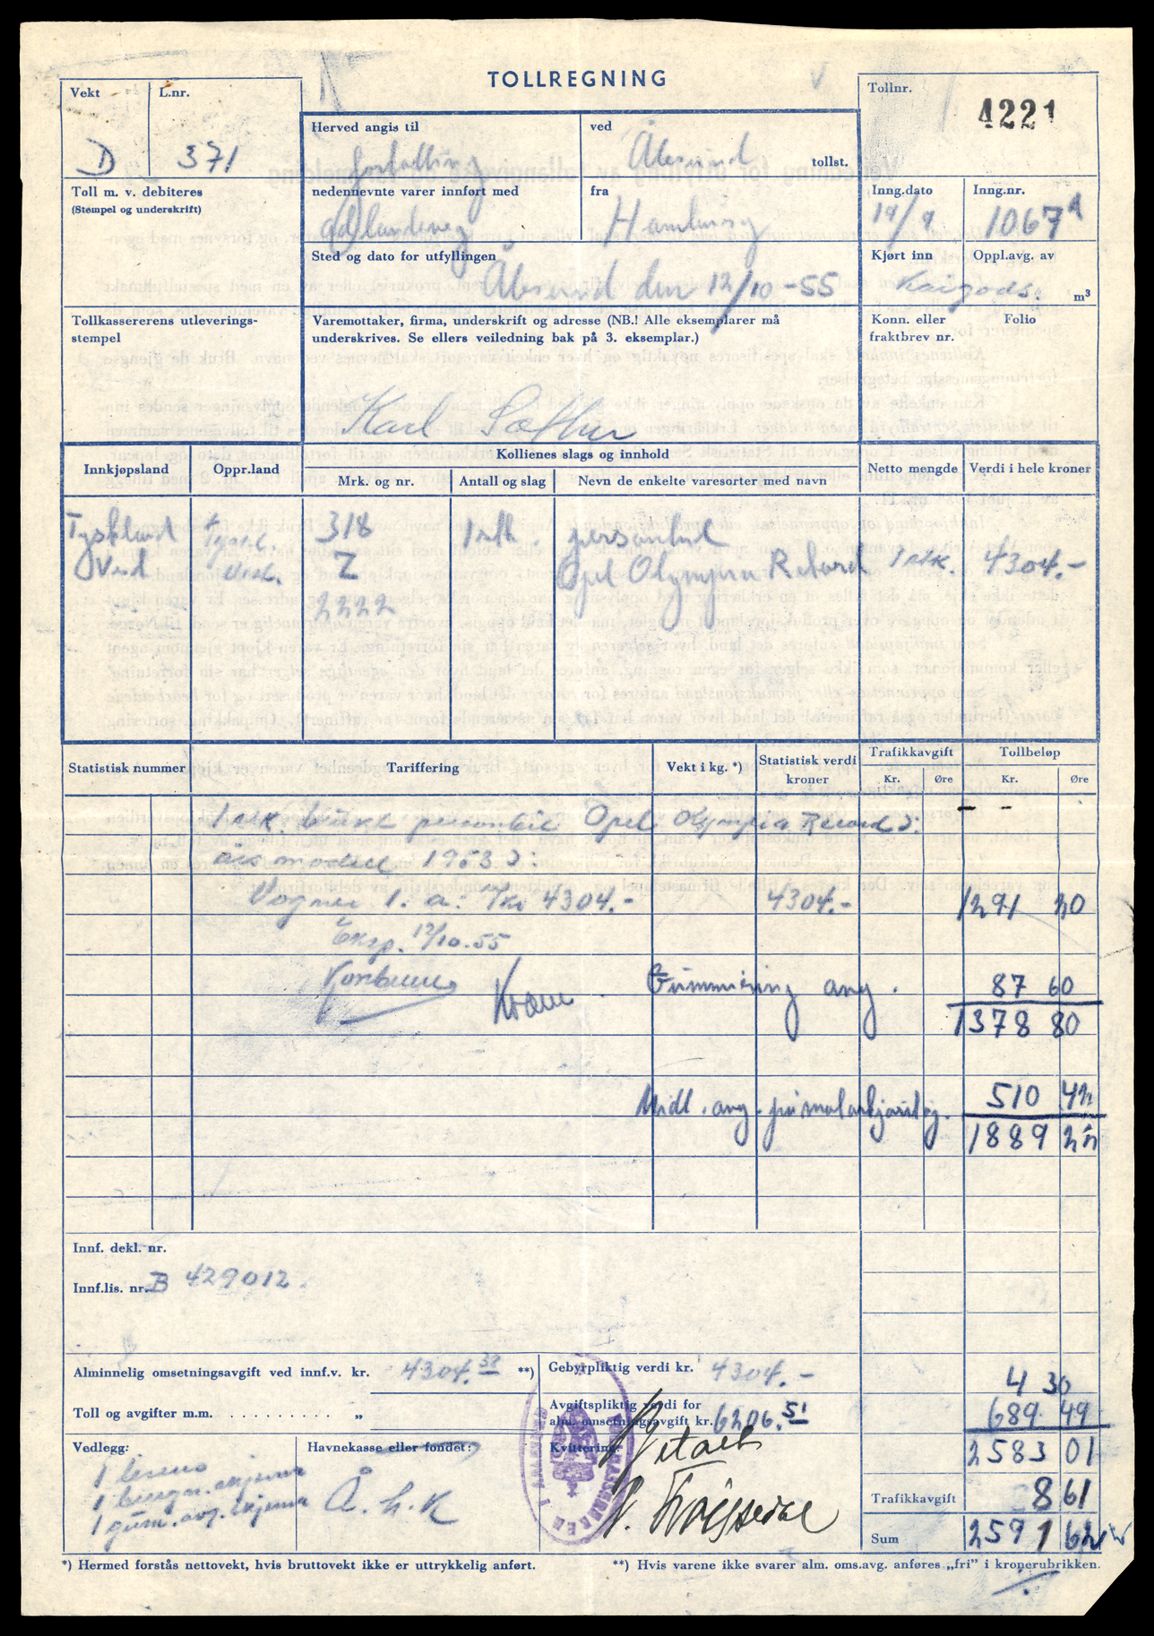 TOLLREGNING
Vekt
D
L.nr.
371
Herved angis til
fortolling
ved
Ålesund
tollst.
Tollnr.
4221
Toll m. v. debiteres
(Stempel og underskrift)
nedennevnte varer innført med
fra
Hamburg
Inng.dato
19/9
Inng.nr.
1067
Sted og dato for utfyllingen
Ålesund den 12/10 - 55
Kjørt inn
Oppl.avg. av
Kaigods.
m³
Tollkassererens utleverings-
stempel
Varemottaker, firma, underskrift og adresse (NB.! Alle eksemplarer må
underskrives. Se ellers veiledning bak på 3. eksemplar.)
Karl Sæther
Konn. eller
fraktbrev nr.
Folio
Innkjøpsland
Oppr.land
Kollienes slags og innhold
Mrk. og nr.
Antall og slag
Nevn de enkelte varesorter med navn
Netto mengde
Verdi i hele kroner
Tyskland
Vest
Tyskl.
Vest.
318
Z
2222
1 stk.
personbil
Opel Olympia Rekord
1 stk.
4304.-
Statistisk nummer
Tariffering
Vekt i kg. *)
Statistisk verdi
kroner
Trafikkavgift
Kr.
Øre
Tollbeløp
Kr.
Øre
1 stk. brukt personbil Opel Olympia Rekord
års modell 1953
Vogner 1. a: Kr 4304.-
4304.-
1291 20
Eksp. 12/10.55
Gummiering avg.
87 60
1378 80
Midl. avg.
510 42
1889 22
Innf. dekl. nr.
Innf.lis. nr. B 429012.
Alminnelig omsetningsavgift ved innf.v. kr. 4304.38 **)
Gebyrpliktig verdi kr. 4304.-
4 30
Toll og avgifter m.m. . . . . . . . . . „
Avgiftspliktig verdi for
alm. omsetningsavgift kr. 6206.51
689 49
Vedlegg:
1 lisens
Havnekasse eller fondet:
Å. h. K
Kvittering:
Betalt
2583 01
Trafikkavgift
8 61
Sum
2591 62
*) Hermed forstås nettovekt, hvis bruttovekt ikke er uttrykkelig anført.
**) Hvis varene ikke svarer alm. oms.avg. anføres „fri” i kronerubrikken.